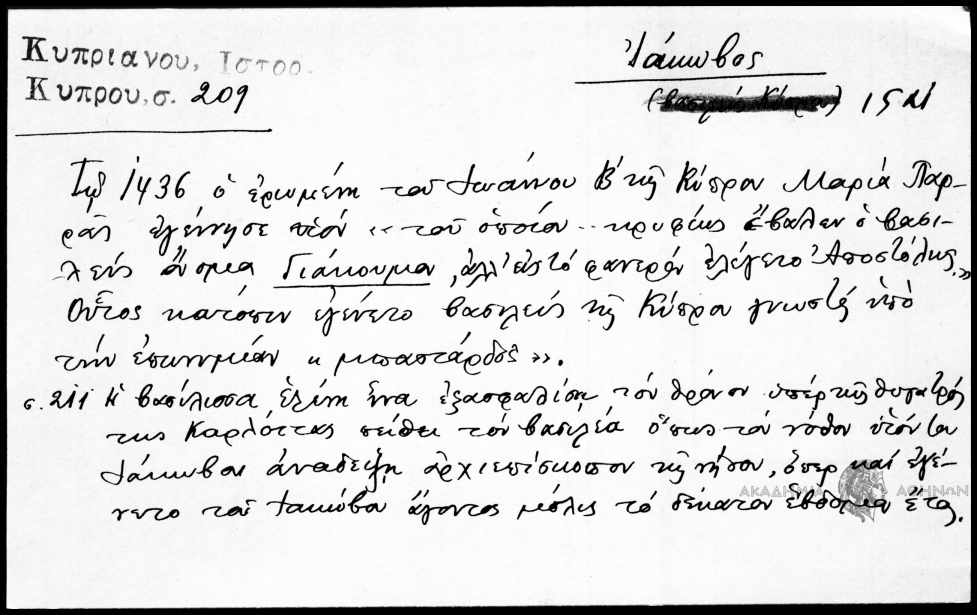 Κυπριανου, Ιστορ.
Κυπρου, σ. 209
Ἰάκωβος
(βασιλεύς Κύπρου) 1521
Τῷ 1436 ὁ ἐρωμένη τοῦ Ἰωάννου Β' τῆς Κύπρου Μαρία Παρ-
ρᾶς ἐγέννησε υἱόν «τοῦ ὁποίου .. κρυφίως ἔβαλεν ὁ βασι-
λεύς ὄνομα Γιάκουμον, ἀλλ' εἰς τό φανερόν ἐλέγετο Ἀποστόλης.»
Οὗτος κατόπιν ἐγένετο βασιλεύς τῆς Κύπρου γνωστός ὑπό
τήν ἐπωνυμίαν «μπαστάρδος».
σ. 211 Ἡ βασίλισσα Ἑλένη ἵνα ἐξασφαλίσῃ τόν θρόνον ὑπέρ τῆς θυγατρός
της Καρλόττας πείθει τόν βασιλέα ὅπως τόν νόθον υἱόν του
Ἰάκωβον ἀναδείξῃ ἀρχιεπίσκοπον τῆς νήσου, ὅπερ καί ἐγέ-
νετο τοῦ Ἰακώβου ἄγοντος μόλις τό δέκατον ἕβδομον ἔτος.
ΑΚΑΔΗΜΙΑ ΑΘΗΝΩΝ